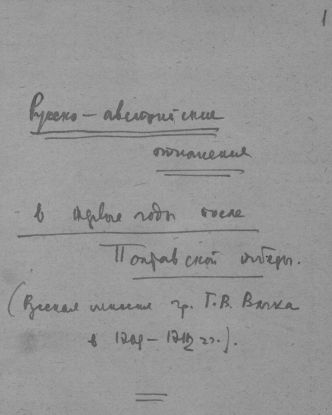 1
Русско-австрийские
отношения
в первые годы после
Полтавской победы.
(Венская миссия гр. Г. В.
в 1709–1712 гг.).